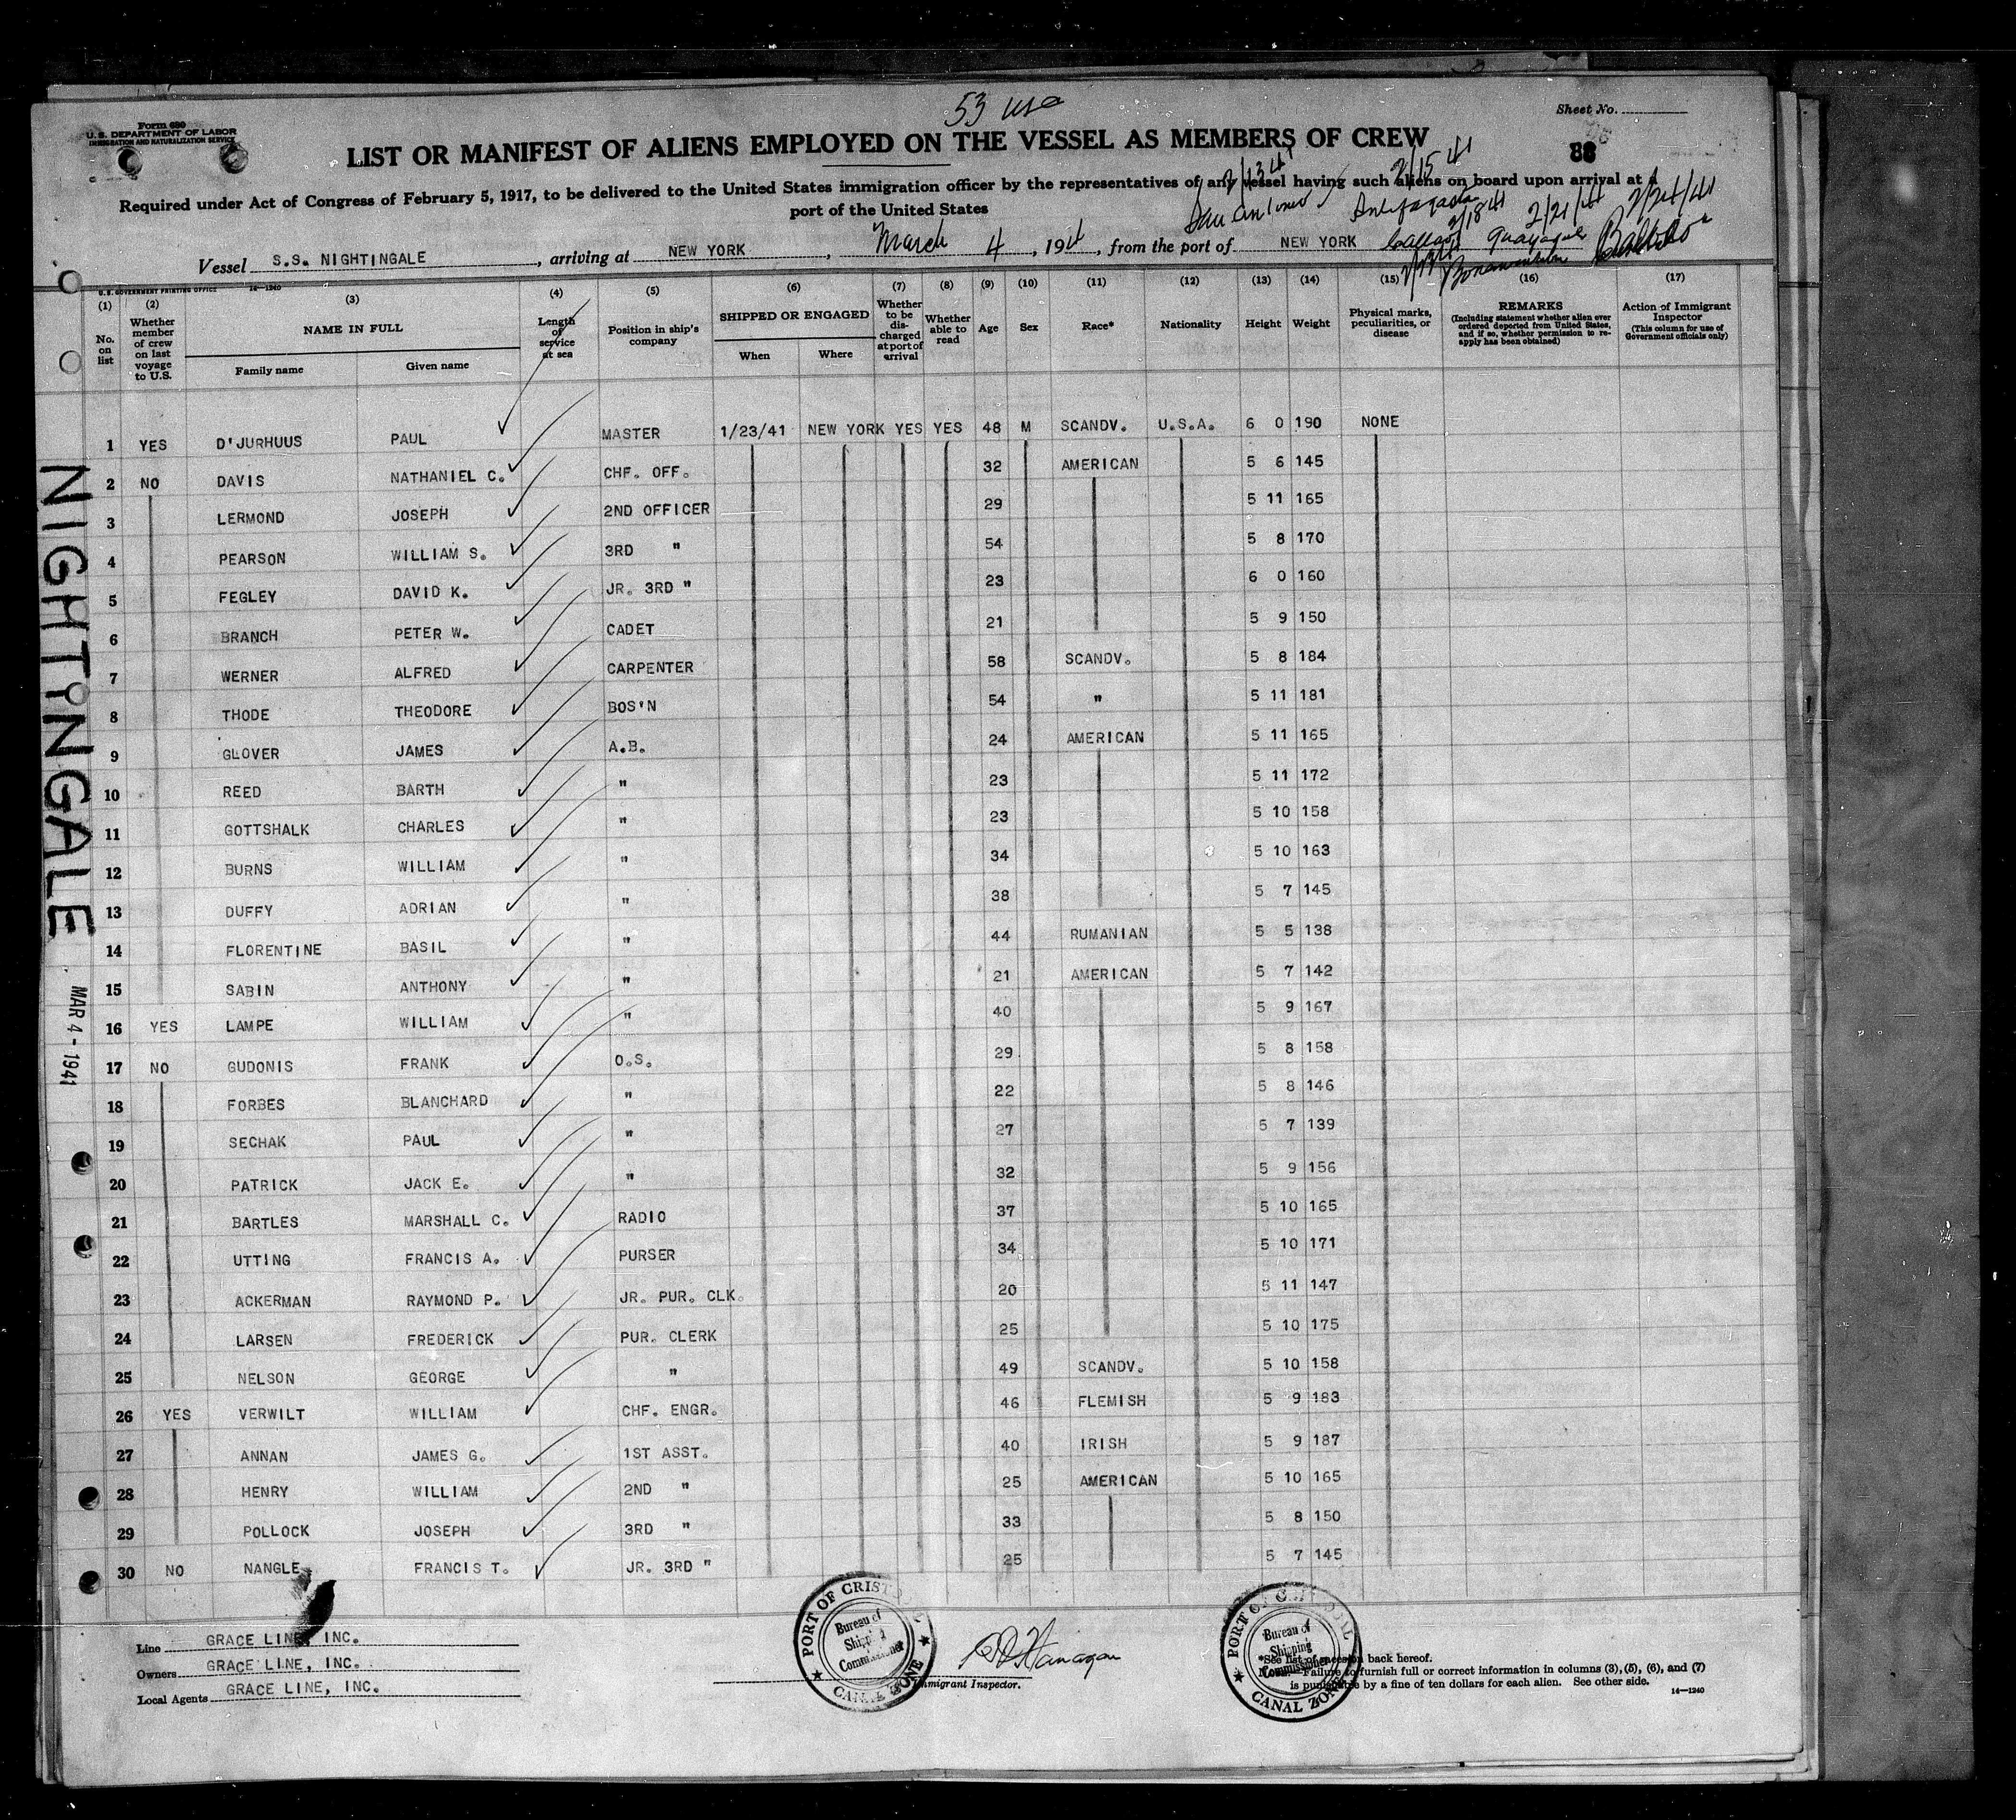 53 USA
Sheet No.
Form 680
U.S. DEPARTMENT OF LABOR
IMMIGRATION AND NATURALIZATION SERVICE
LIST OR MANIFEST OF ALIENS EMPLOYED ON THE VESSEL AS MEMBERS OF CREW
88
Required under Act of Congress of February 5, 1917, to be delivered to the United States immigration officer by the representatives of any vessel having such aliens on board upon arrival at a
port of the United States
San Antonio 2/13/41 Antofagasta 2/15/41
Callao 2/18/41 Guayaquil 2/21/41 Balboa 2/24/41
Buenaventura
Vessel S.S. NIGHTINGALE, arriving at NEW YORK, March 4, 1941, from the port of NEW YORK
U.S. GOVERNMENT PRINTING OFFICE 14—1240
(1) (2) (3) (4) (5) (6) (7) (8) (9) (10) (11) (12) (13) (14) (15) (16) (17)
No. on list
Whether member of crew on last voyage to U.S.
NAME IN FULL
Family name Given name
Length of service at sea
Position in ship's company
SHIPPED OR ENGAGED
When Where
Whether to be discharged at port of arrival
Whether able to read
Age
Sex
Race*
Nationality
Height
Weight
Physical marks, peculiarities, or disease
REMARKS
(Including statement whether alien ever ordered deported from United States, and if so, whether permission to reapply has been obtained)
Action of Immigrant Inspector
(This column for use of Government officials only)
1 YES D'JURHUUS PAUL MASTER 1/23/41 NEW YORK YES YES 48 M SCANDV. U.S.A. 6 0 190 NONE
2 NO DAVIS NATHANIEL C. CHF. OFF. 32 AMERICAN 5 6 145
3 LERMOND JOSEPH 2ND OFFICER 29 5 11 165
4 PEARSON WILLIAM S. 3RD " 54 5 8 170
5 FEGLEY DAVID K. JR. 3RD " 23 6 0 160
6 BRANCH PETER W. CADET 21 5 9 150
7 WERNER ALFRED CARPENTER 58 SCANDV. 5 8 184
8 THODE THEODORE BOS'N 54 " 5 11 181
9 GLOVER JAMES A.B. 24 AMERICAN 5 11 165
10 REED BARTH " 23 5 11 172
11 GOTTSHALK CHARLES " 23 5 10 158
12 BURNS WILLIAM " 34 5 10 163
13 DUFFY ADRIAN " 38 5 7 145
14 FLORENTINE BASIL " 44 RUMANIAN 5 5 138
15 SABIN ANTHONY " 21 AMERICAN 5 7 142
16 YES LAMPE WILLIAM " 40 5 9 167
17 NO GUDONIS FRANK O.S. 29 5 8 158
18 FORBES BLANCHARD " 22 5 8 146
19 SECHAK PAUL " 27 5 7 139
20 PATRICK JACK E. " 32 5 9 156
21 BARTLES MARSHALL C. RADIO 37 5 10 165
22 UTTING FRANCIS A. PURSER 34 5 10 171
23 ACKERMAN RAYMOND P. JR. PUR. CLK. 20 5 11 147
24 LARSEN FREDERICK PUR. CLERK 25 5 10 175
25 NELSON GEORGE " 49 SCANDV. 5 10 158
26 YES VERWILT WILLIAM CHF. ENGR. 46 FLEMISH 5 9 183
27 ANNAN JAMES G. 1ST ASST. 40 IRISH 5 9 187
28 HENRY WILLIAM 2ND " 25 AMERICAN 5 10 165
29 POLLOCK JOSEPH 3RD " 33 5 8 150
30 NO NANGLE FRANCIS T. JR. 3RD " 25 5 7 145
NIGHTINGALE
MAR 4 - 1941
Line GRACE LINE, INC.
Owners GRACE LINE, INC.
Local Agents GRACE LINE, INC.
PORT OF CRISTOBAL
Bureau of Shipping Commissioner
CANAL ZONE
Immigrant Inspector.
PORT OF CRISTOBAL
Bureau of Shipping Commissioner
CANAL ZONE
*See list of races on back hereof.
Failure to furnish full or correct information in columns (3), (5), (6), and (7)
is punishable by a fine of ten dollars for each alien. See other side.
14—1240